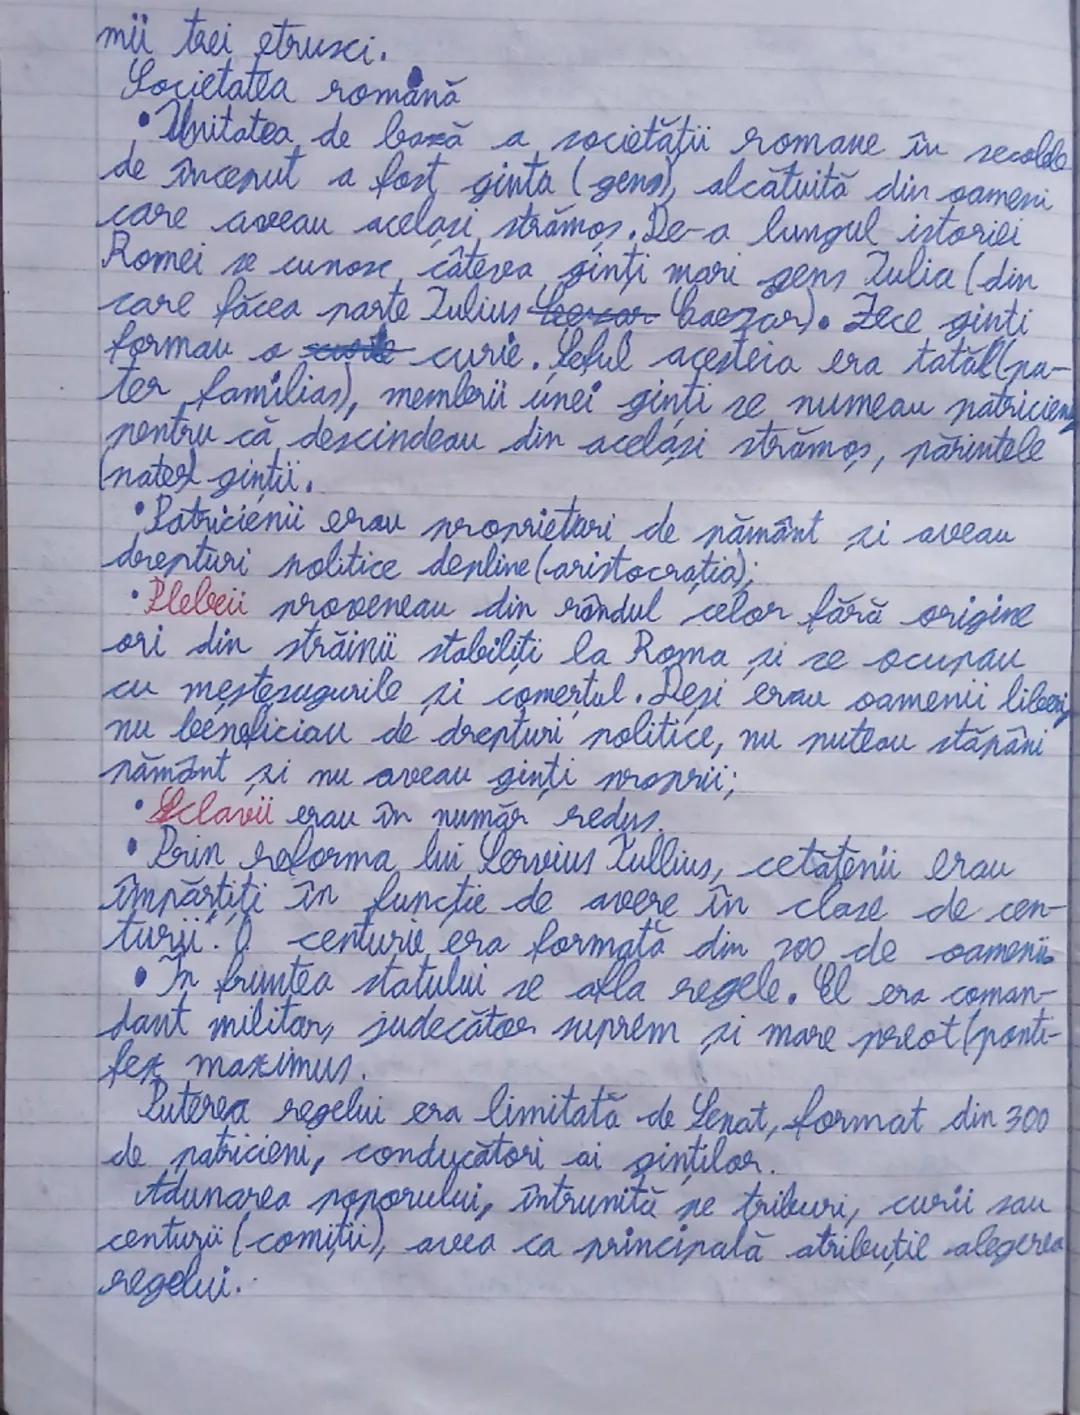 mii trei etrusci.
Societatea romană
• Unitatea de bază a societății romane în secolele
de început a fost ginta (gens), alcătuită din oameni
care aveau același strămoș. De-a lungul istoriei
Romei se cunosc câteva ginți mari gens Iulia (din
care făcea parte Iulius Caezar). Zece ginți
formau o curie. Șeful acesteia era tatăl (pa-
ter familias), membrii unei ginți se numeau patricieni
pentru că descindeau din același strămoș, părintele
(pater) gintii.
• Patricienii erau proprietari de pământ și aveau
drepturi politice depline (aristocrația);
• Plebeii proveneau din rândul celor fără origine
ori din străinii stabiliți la Roma și se ocupau
cu meșteșugurile și comerțul. Deși erau oamenii liberi,
nu beneficiau de drepturi politice, nu puteau stăpâni
pământ și nu aveau ginți proprii;
• Sclavii erau în număr redus.
• Prin reforma lui Servius Tullius, cetățenii erau
împărțiți în funcție de avere în clase de cen-
turii. O centurie era formată din 200 de oamenii.
• În fruntea statului se afla regele. El era coman-
dant militar, judecător suprem și mare preot (ponti-
fex maximus.
Puterea regelui era limitată de Senat, format din 300
de patricieni, conducători ai ginților.
Adunarea poporului, întrunită pe triburi, curii sau
centurii (comiții), avea ca principală atribuție alegerea
regelui.